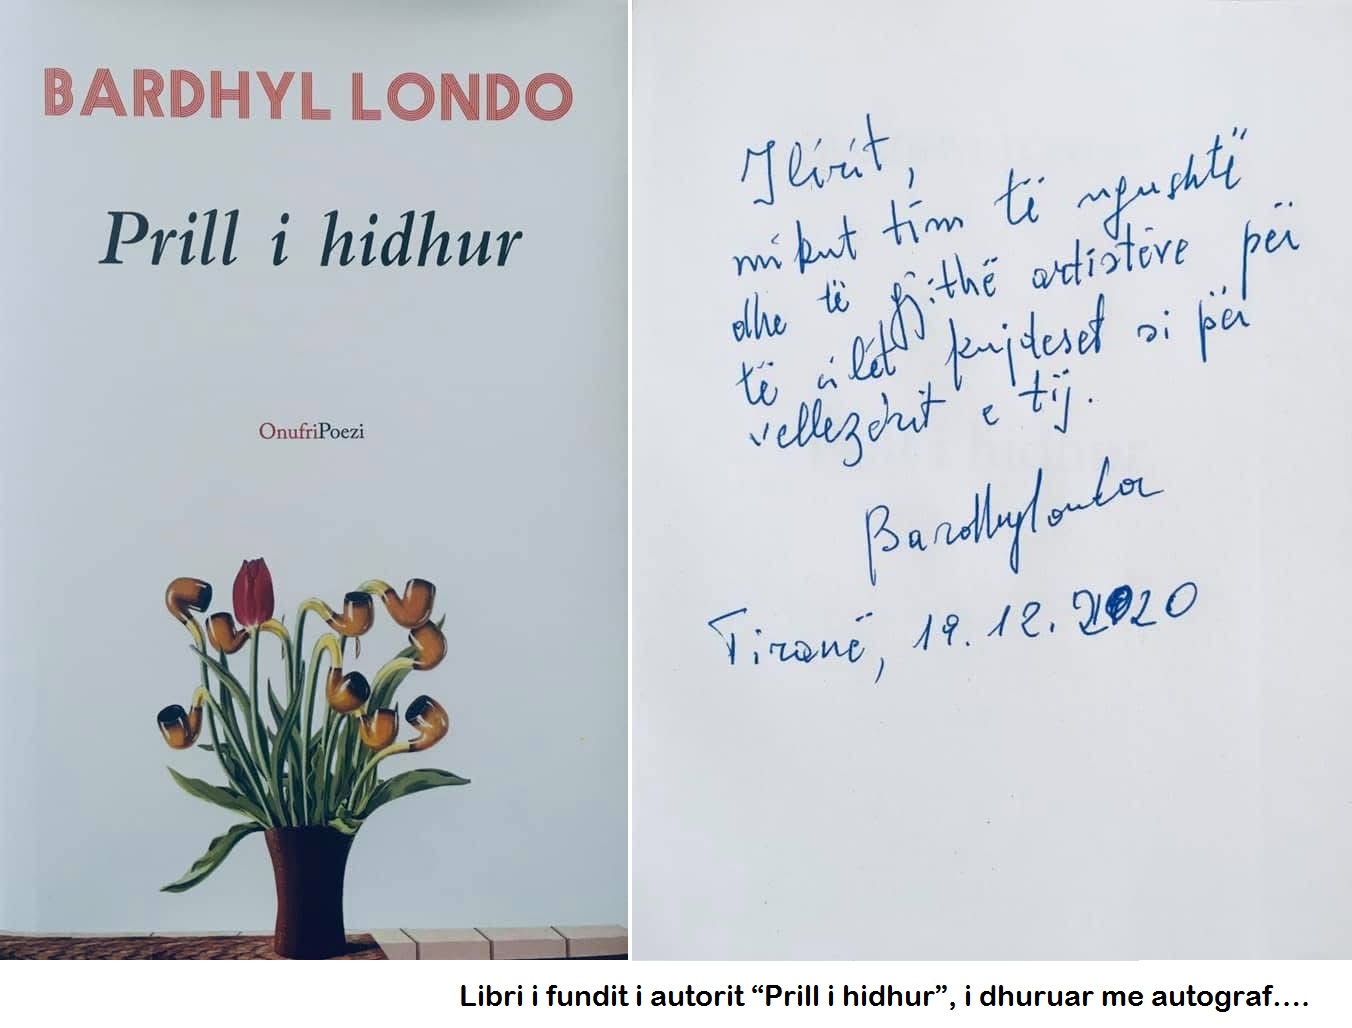 BARDHYL LONDO
Prill i hidhur
OnufriPoezi
Ilirit,
mikut tim të ngushtë
dhe të gjithë artistëve për
të cilët kujdeset si për
vellezërit e tij.
Bardhyl Londo
Tiranë, 19.12.2020
Libri i fundit i autorit “Prill i hidhur”, i dhuruar me autograf....